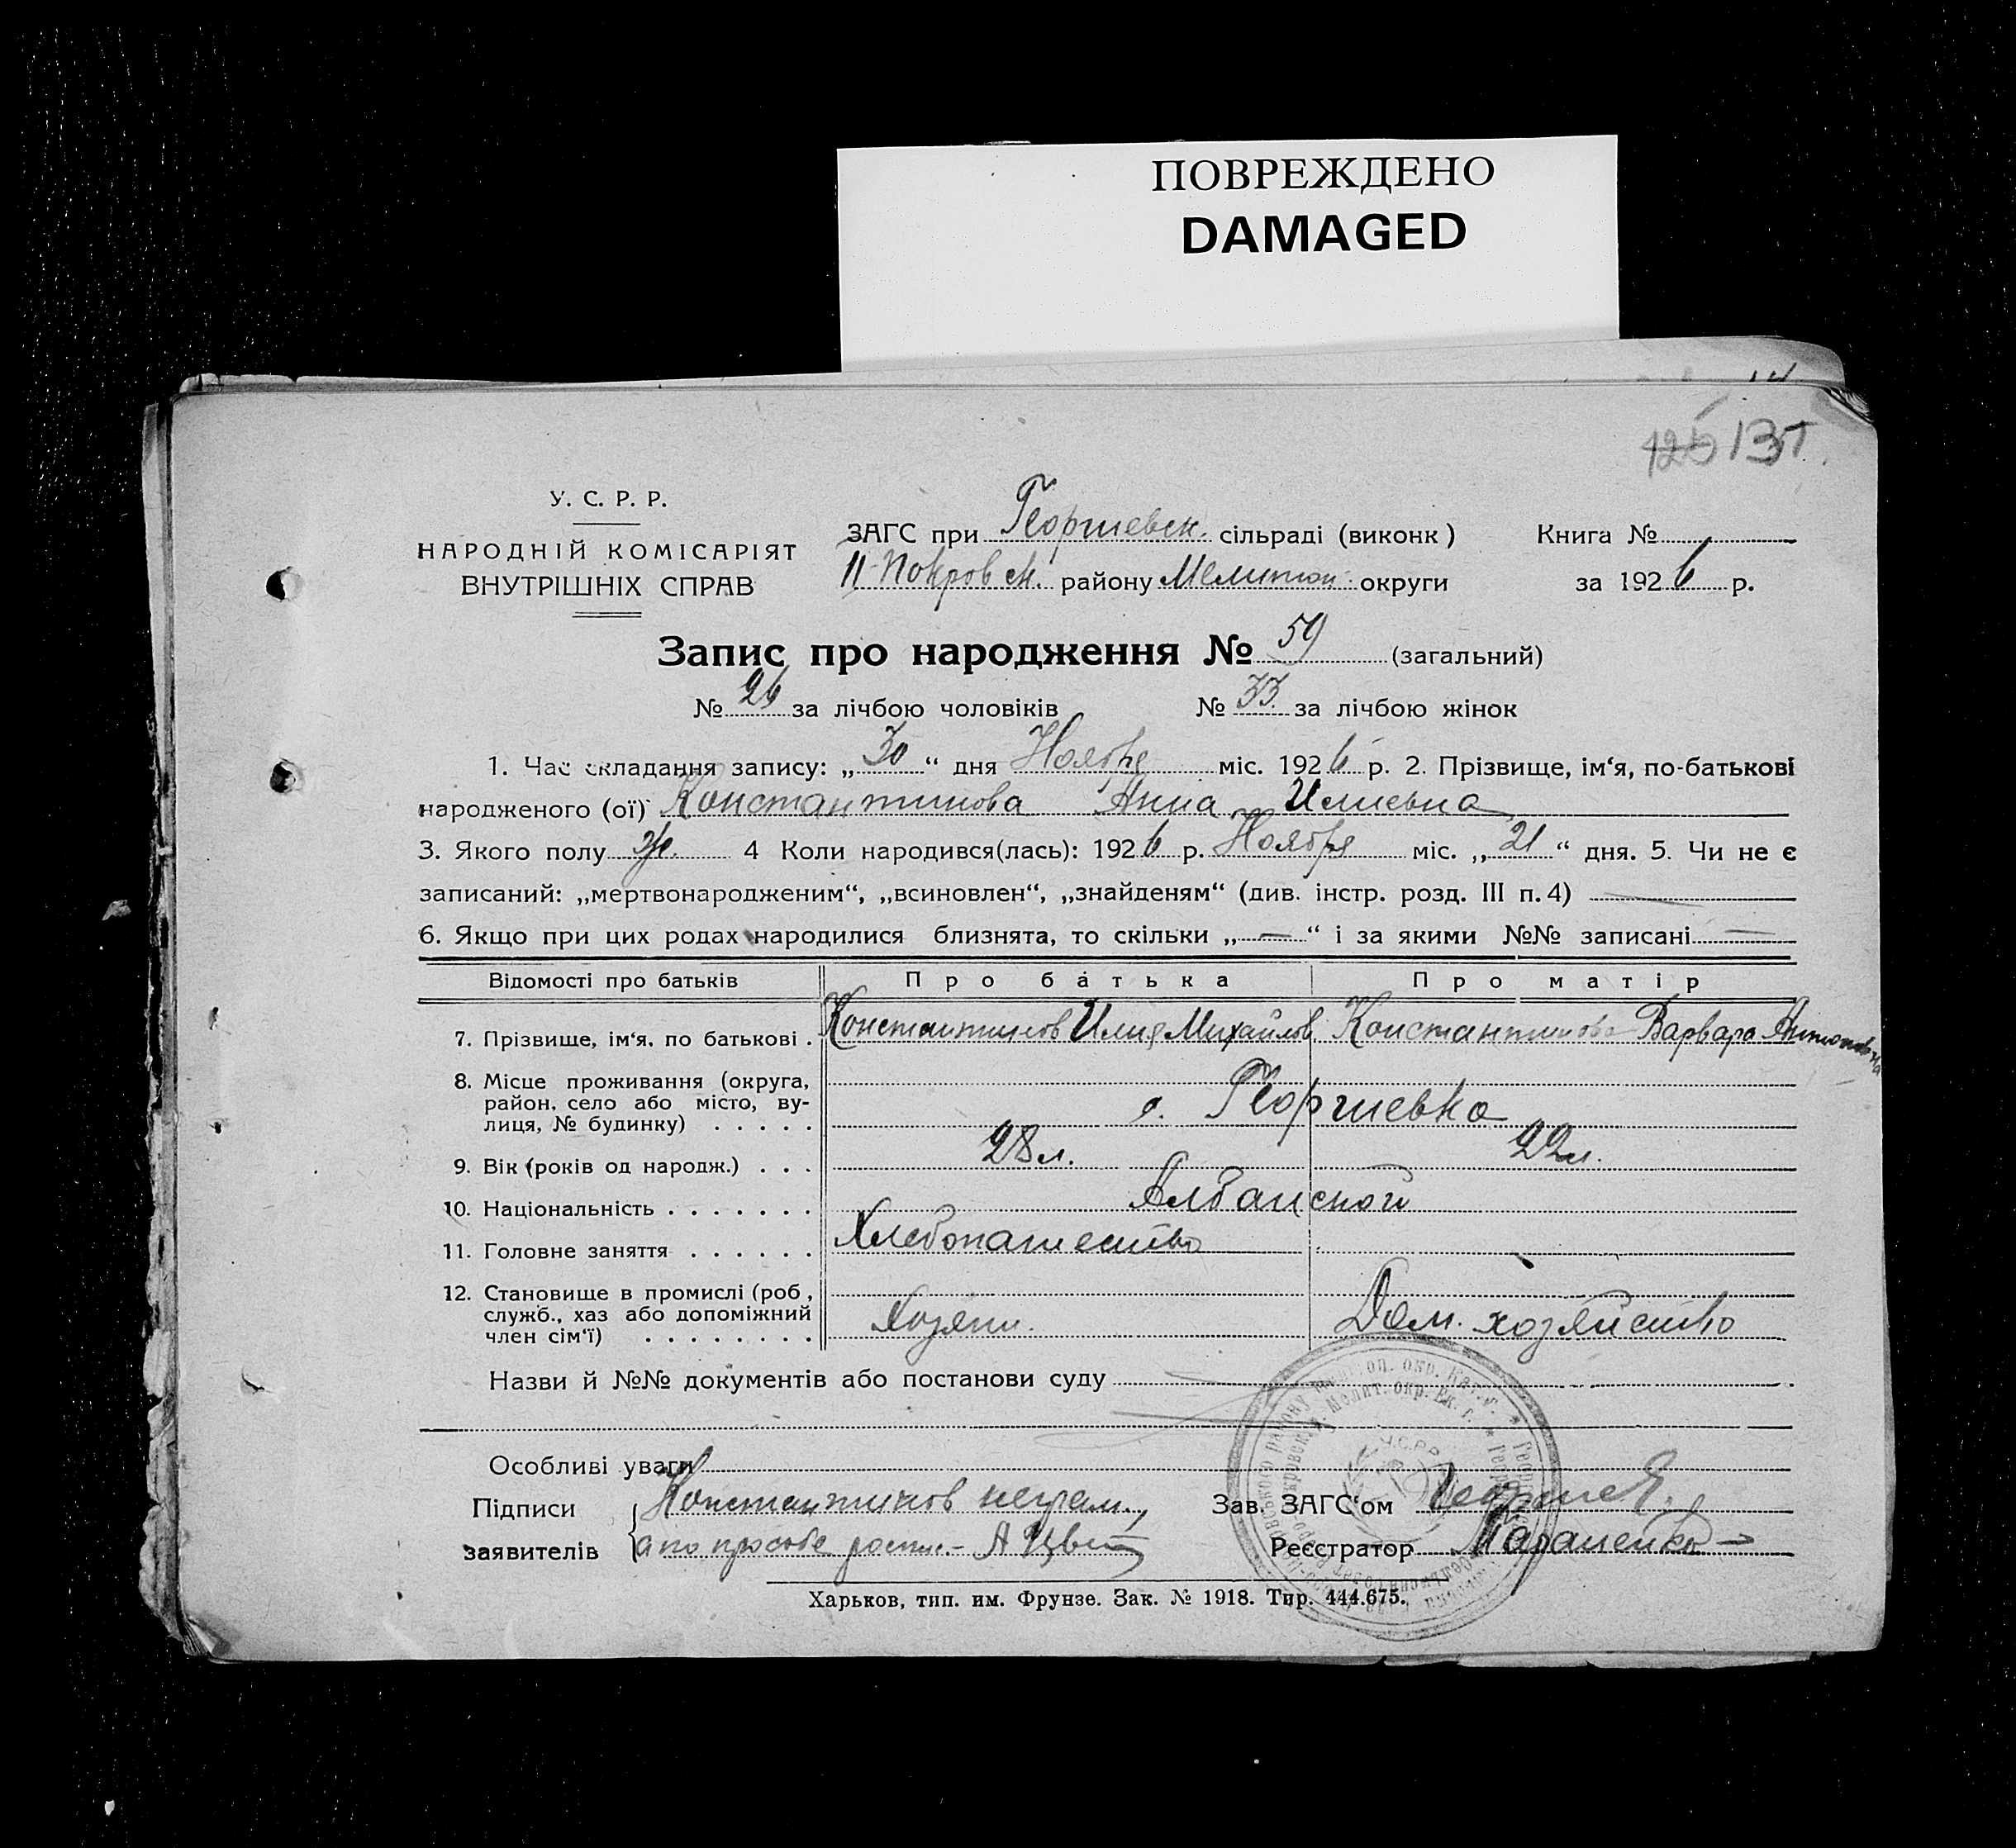 ПОВРЕЖДЕНО
DAMAGED
У. С. Р. Р.
НАРОДНІЙ КОМІСАРІЯТ
ВНУТРІШНІХ СПРАВ
ЗАГС при Георгиевск. сільраді (виконк) Книга №
П-Покровск. району Мелитоп. округи за 1926 р.
Запис про народження № 59 (загальний)
№ 26 за лічбою чоловіків № 33 за лічбою жінок
1. Час складання запису: „30“ дня Ноября міс. 1926 р. 2. Прізвище, ім‘я, по-батькові
народженого (ої) Константинова Анна Илиевна
3. Якого полу ж. 4 Коли народився(лась): 1926 р. Ноября міс. „21“ дня. 5. Чи не є
записаний: „мертвонародженим“, „всиновлен“, „знайденям“ (див. інстр. розд. III п. 4) —
6. Якщо при цих родах народилися близнята, то скільки „—“ і за якими №№ записані —
Відомості про батьків Про батька Про матір
7. Прізвище, ім‘я, по батькові . Константинов Илия Михайлов. Константинова Варвара Антоновна
8. Місце проживання (округа,
район, село або місто, ву-
лиця, № будинку) . . . . . с. Георгиевка
9. Вік (років од народж.) . . . 28 л. 22 л.
10. Національність . . . . . . . Албанской
11. Головне заняття . . . . . . Хлебопашество
12. Становище в промислі (роб,
служб., хаз або допоміжний
член сім‘ї) . . . . . . . . Хозяин. Дом. хозяйство
Назви й №№ документів або постанови суду
Особливі уваги
Підписи Константинов неграм., Зав. ЗАГС‘ом
заявителів а по просьбе роспис.- А Цвет Реєстратор
Харьков, тип. им. Фрунзе. Зак. № 1918. Тир. 444.675.